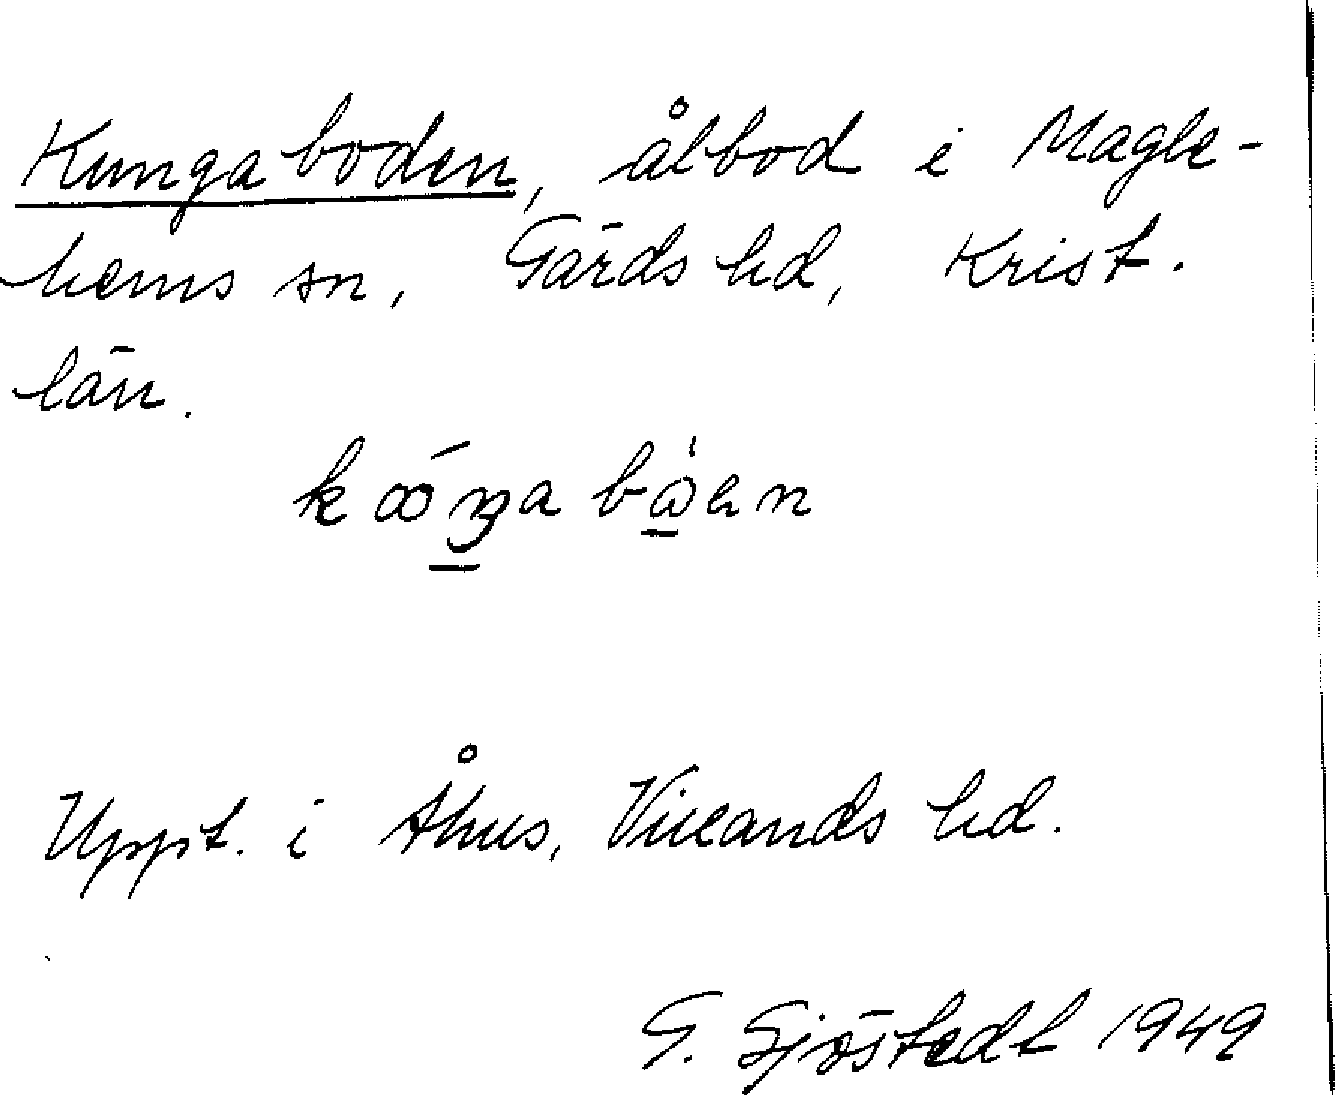 Kungaboden, ålbod i Magle-
hems sn, Gärds hd, Krist.
län.
Uppt. i Åhus, Villands hd.
G. Sjöstedt 1949